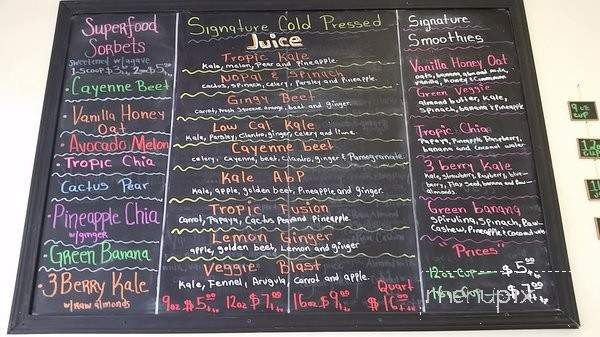 Superfood
Sorbets
sweetened w/agave
1-scoop $3 2 $5
Cayenne Beet
Vanilla Honey
Oat
Avocado Melon
Tropic Chia
Cactus Pear
Pineapple Chia
w/ginger
Green Banana
3 Berry Kale
w/raw almonds
Signature Cold Pressed
Juice
Tropic Kale
Kale, melon, Pear and Pineapple
Nopal & Spinach
Cactus, Spinach, Celery, Parsley and Pineapple.
Gingy Beet
Carrot, fresh Squeeze orange, beet and ginger
Low Cal Kale
Kale, Parsley, Cilantro, ginger, Celery and lime
Cayenne beet
celery, Cayenne, beet, Cilantro, ginger & Pomegranate.
Kale ABP
Kale, apple, golden beet, Pineapple and ginger.
Tropic Fusion
Carrot, Papaya, Cactus Pear and pineapple.
Lemon Ginger
apple, golden beet, Lemon and ginger
Veggie Blast
Kale, Fennel, Arugula, Carrot and apple.
Quart
9oz $5.00 12oz $7.00 16oz $9.00 $16.00
Signature
Smoothies
Vanilla Honey Oat
oats, banana, almond milk,
vanilla, honey & cinnamon
Green Veggie
almond butter, Kale,
Spinach, banana & Pineapple
Tropic Chia
Papaya, Pineapple, Raspberry,
banana and Coconut water
3 berry Kale
Kale, Strawberry, Raspberry, blue-
berry, Flax Seed, banana and Raw
almonds
Green banana
Spirulina, Spinach, Raw
Cashew, Pineapple & Coconut
"Prices"
12oz Cup $5.00
16oz $7.00
9oz
CUP
CUP
menupix